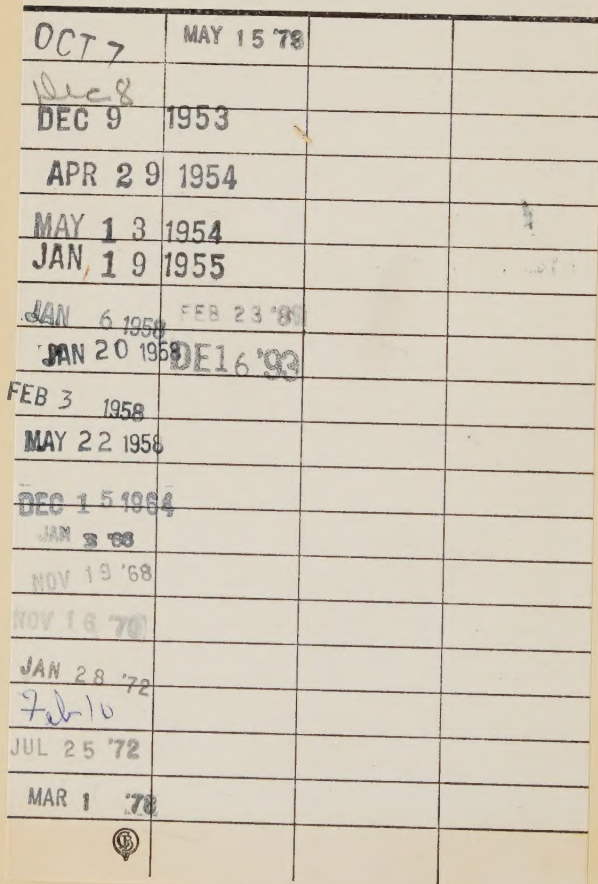 OCT 7
Dec 8
DEC 9 1953
APR 29 1954
MAY 13 1954
JAN 19 1955
JAN 6 1958
JAN 20 1958
FEB 3 1958
MAY 22 1958
DEC 15 1964
JAN 3 '68
NOV 19 '68
NOV 16 '70
JAN 28 '72
Feb 10
JUL 25 '72
MAR 1 '78
MAY 15 '78
FEB 23 '89
DE16 '93